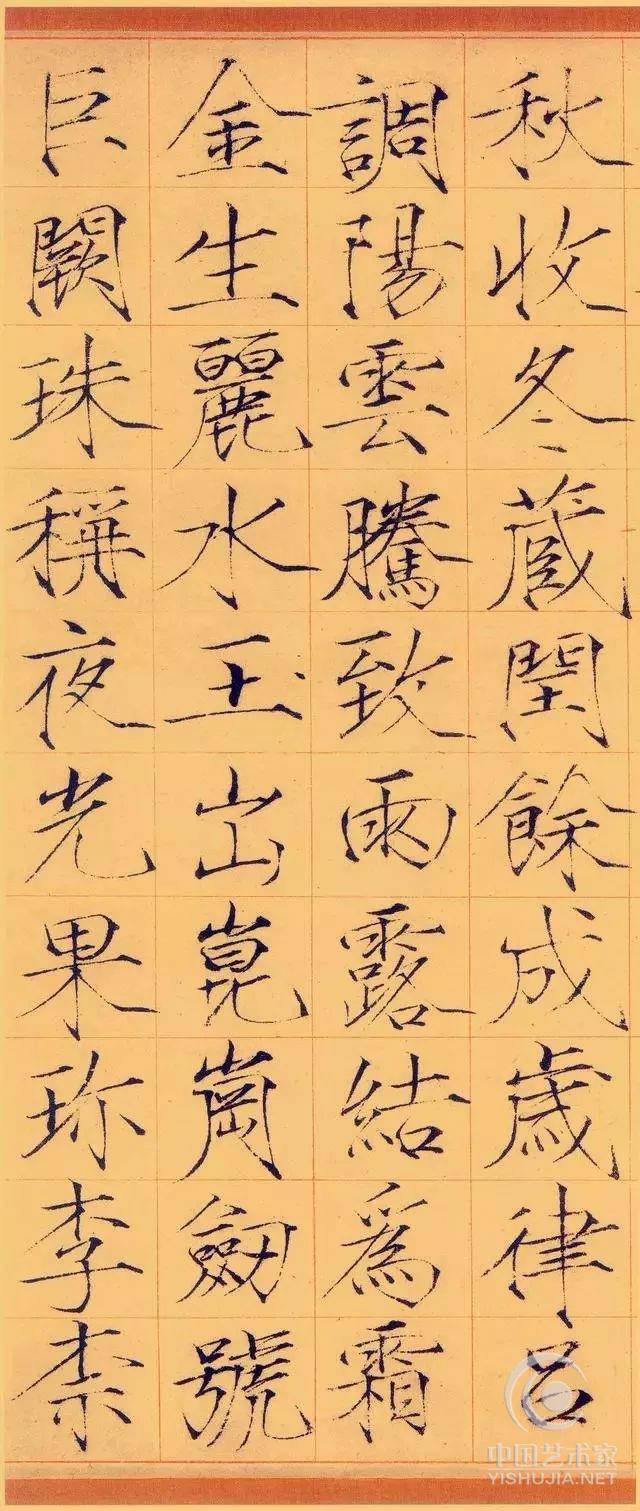 秋收冬蔵閏餘成歳律呂
調陽雲騰致雨露結爲霜
金生麗水玉出崑崗劔號
巨闕珠稱夜光果珎李柰
中国艺术家
YISHUJIA.NET